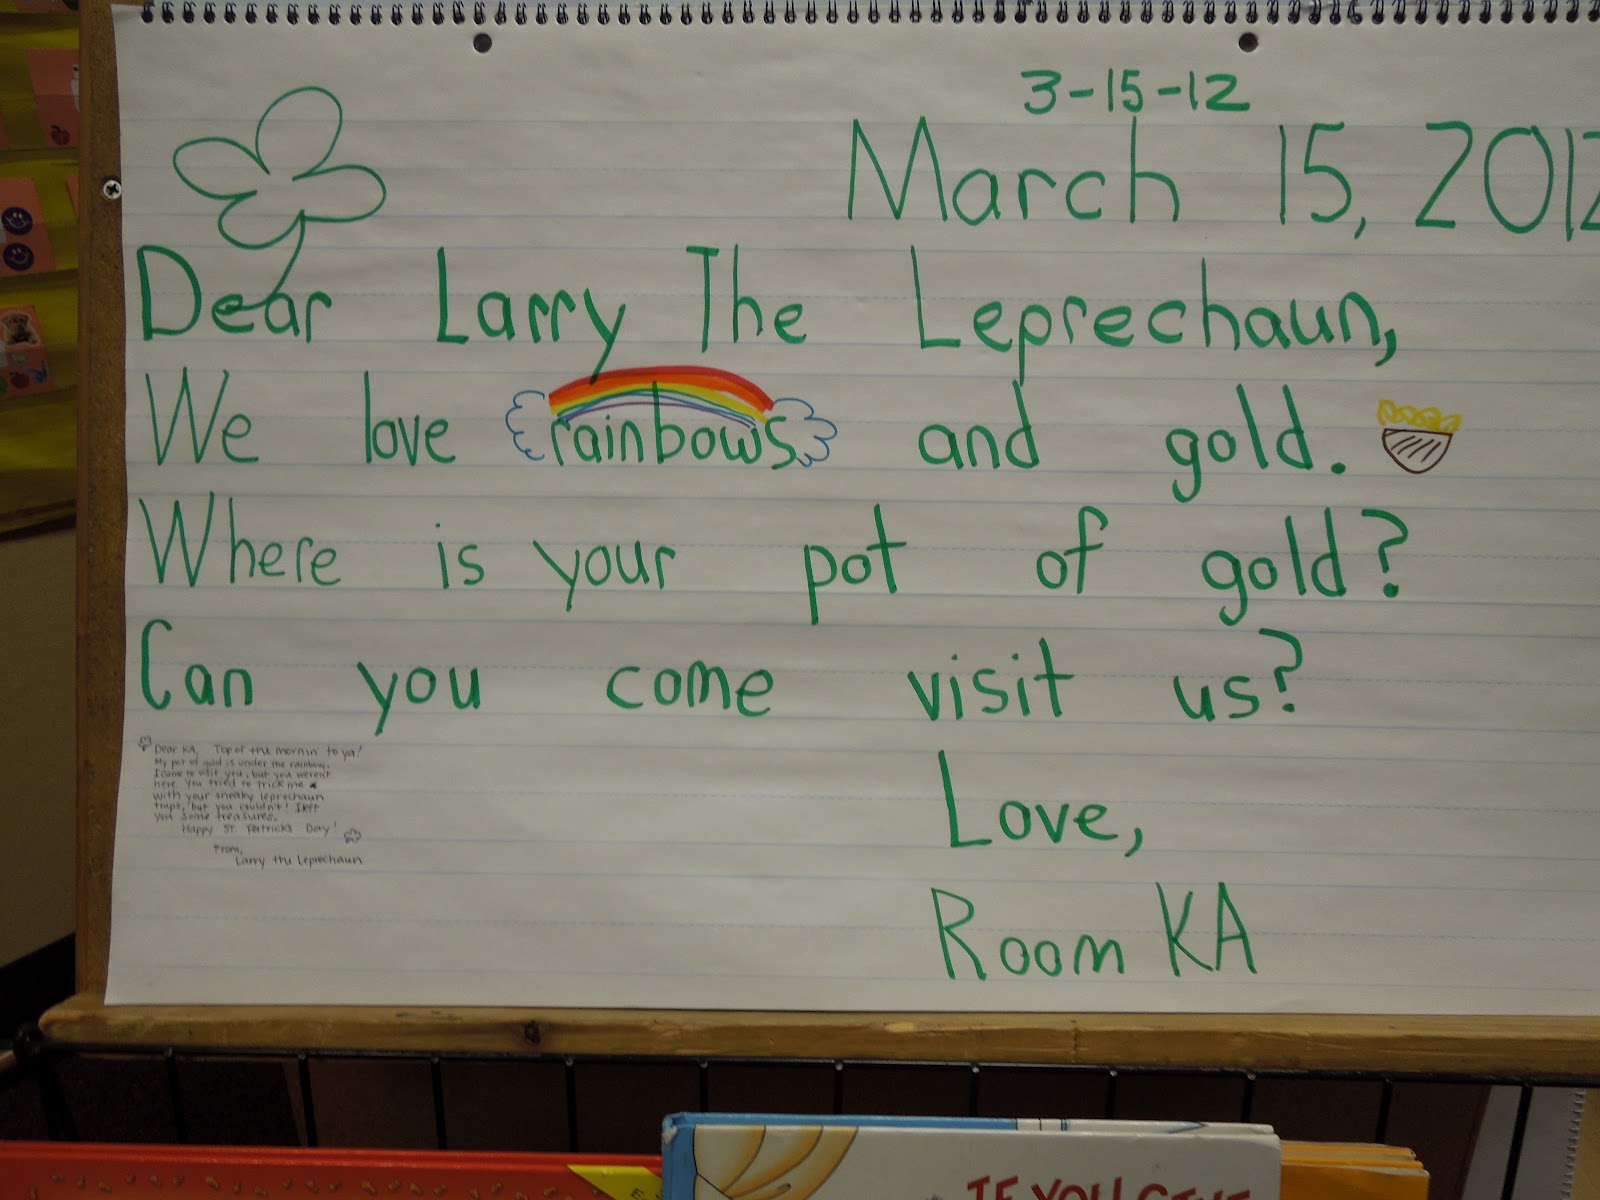 3-15-12
March 15, 2012
Dear Larry The Leprechaun,
We love rainbows and gold.
Where is your pot of gold?
Can you come visit us?
Love,
Room KA
Dear KA, Top of the mornin' to ya!
My pot of gold is under the rainbow.
I came to visit you, but you weren't
here. You tried to trick me
with your sneaky leprechaun
traps, but you couldn't! I left
you some treasures.
Happy St. Patrick's Day!
From,
Larry the Leprechaun
IF YOU GIVE